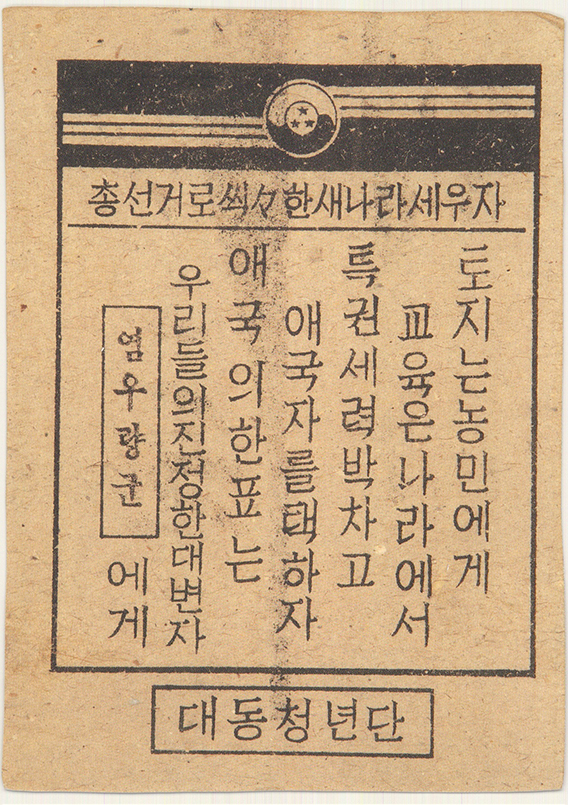 총선거로씩々한새나라세우자
토지는농민에게
교육은나라에서
특권세력박차고
애국자를택하자
애국의한표는
우리들의진정한대변자
염우량군에게
대동청년단